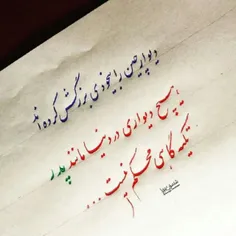 دیوار چین را بیخودی بزرگش کرده اند
هیچ دیواری در دنیا مانند پدر
تکیه گاهی محکم نیست ...